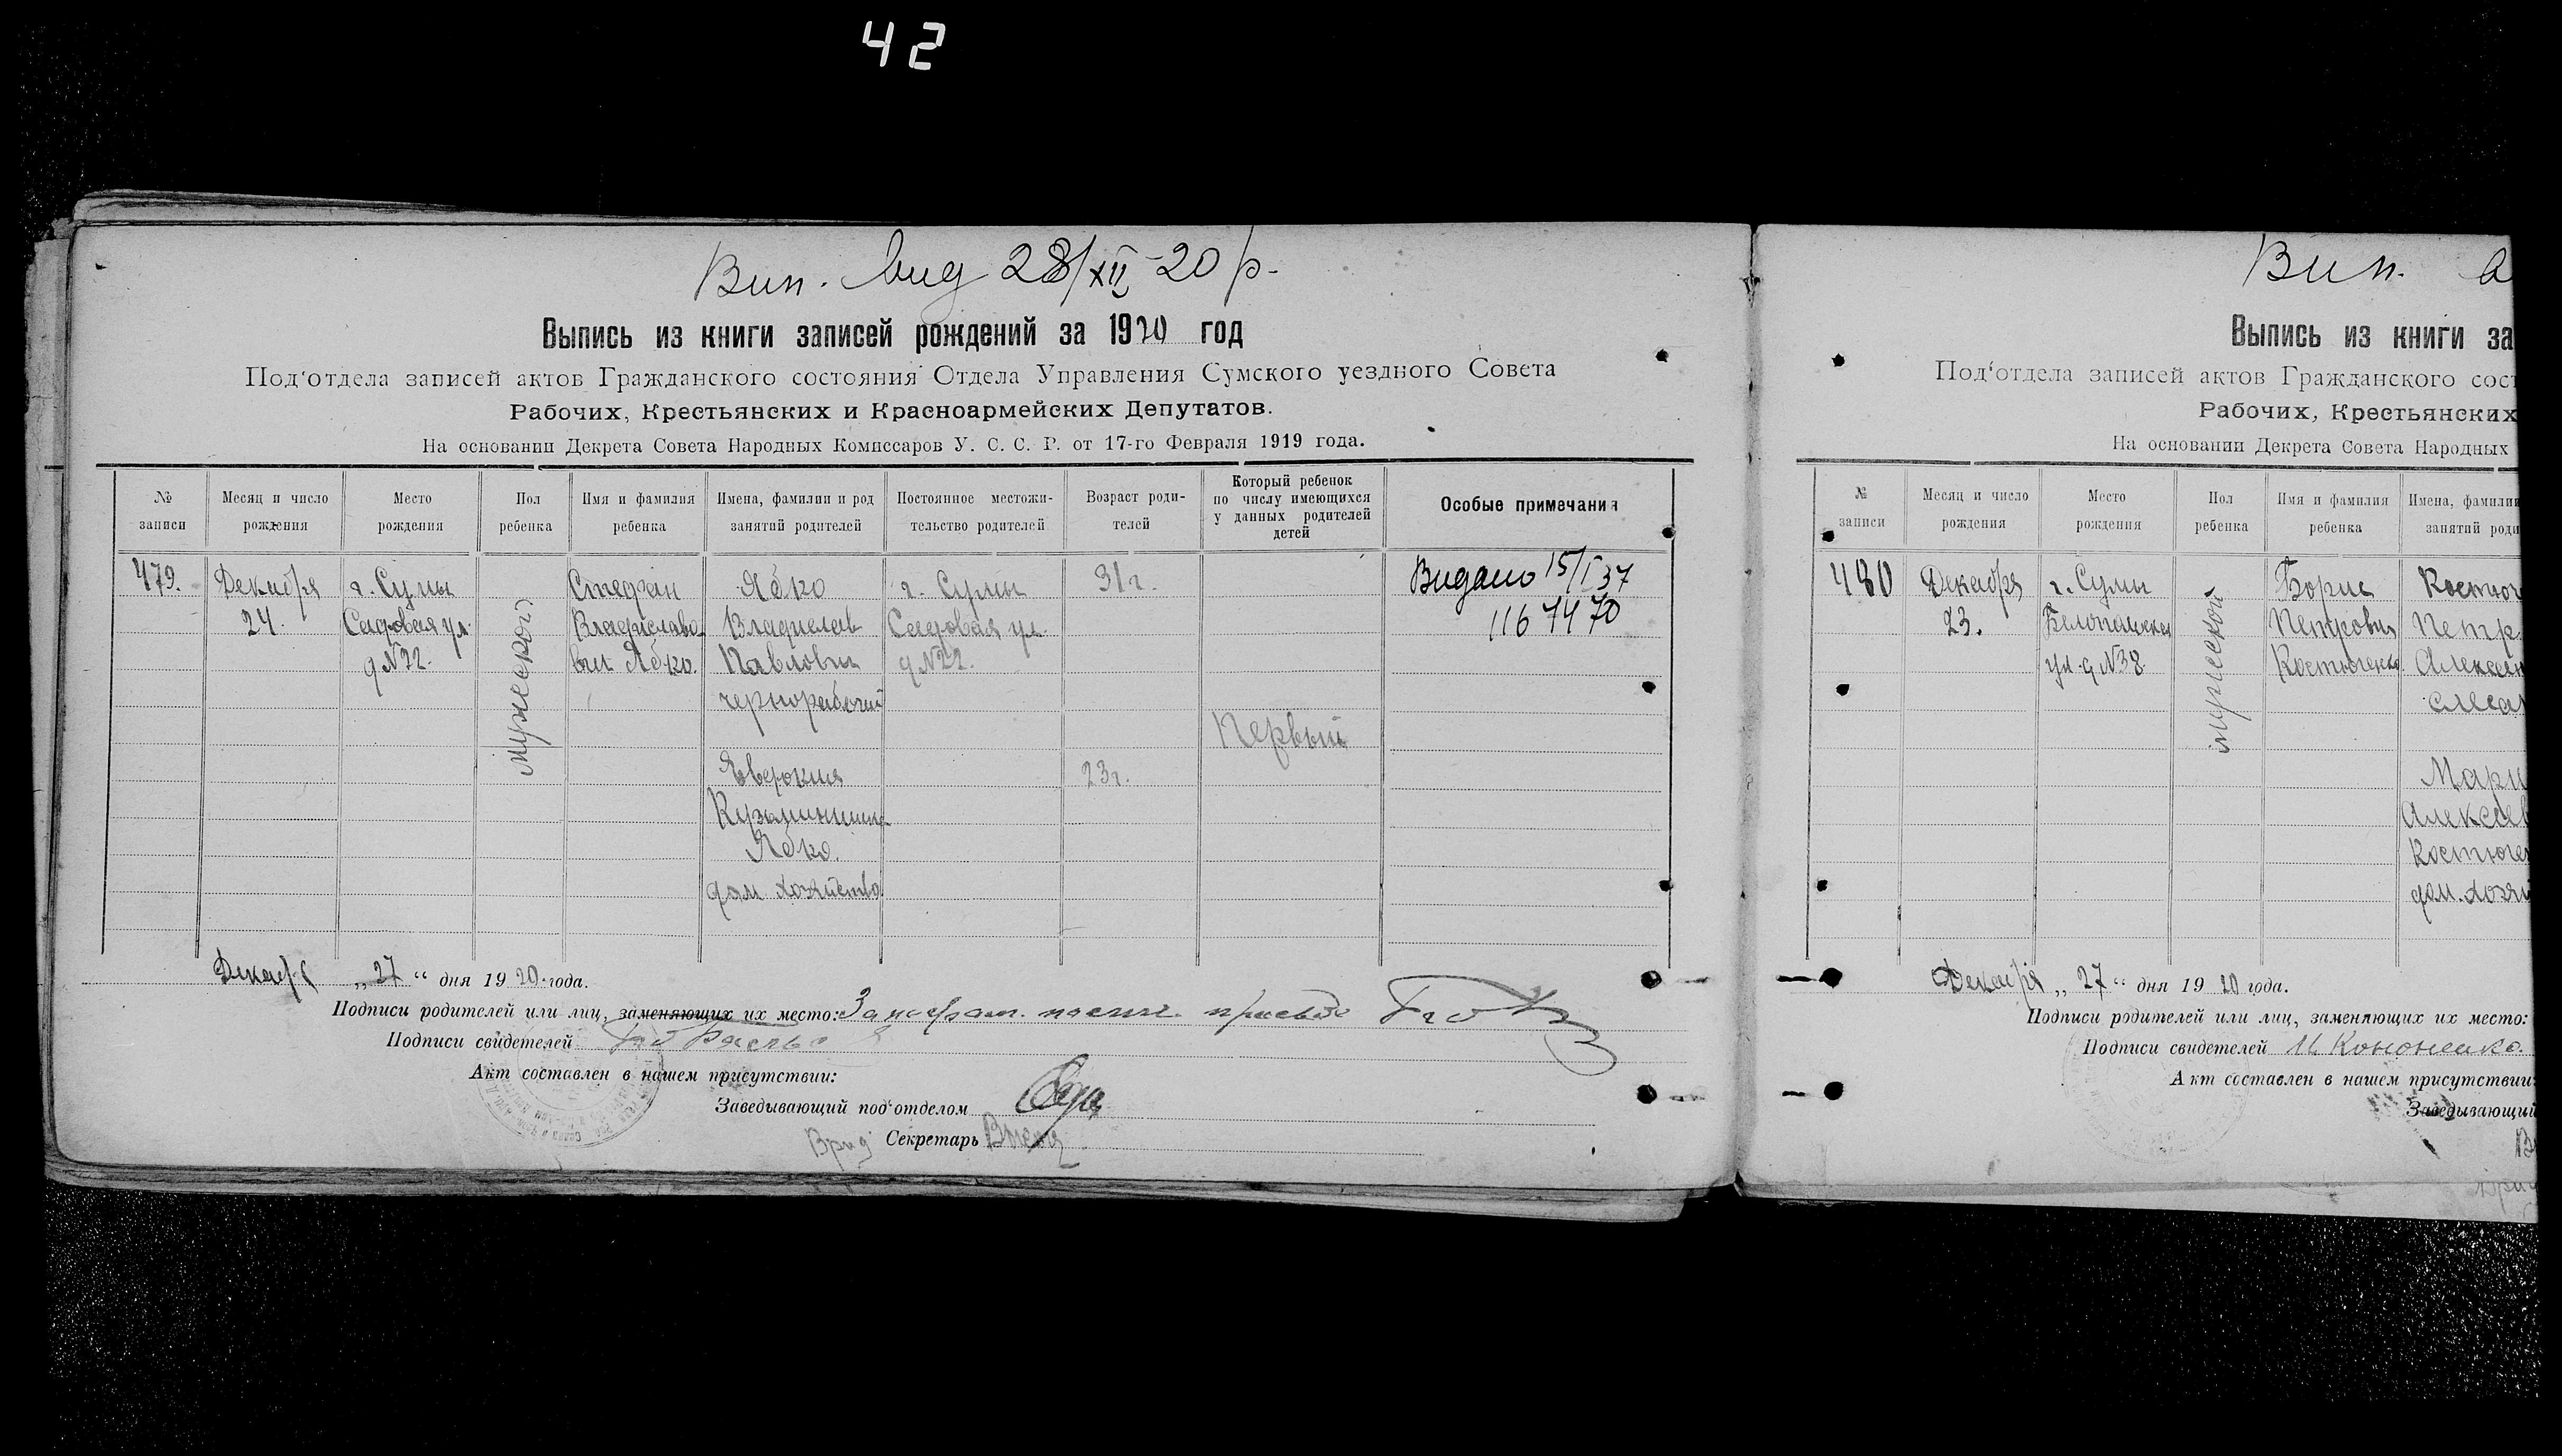 42
Вип. вид 28/XII-20 р.
Выпись из книги записей рождений за 1920 год
Под‘отдела записей актов Гражданского состояния Отдела Управления Сумского уездного Совета
Рабочих, Крестьянских и Красноармейских Депутатов.
На основании Декрета Совета Народных Комиссаров У. С. С. Р. от 17-го Февраля 1919 года.
№ записи
Месяц и число рождения
Место рождения
Пол ребенка
Имя и фамилия ребенка
Имена, фамилии и род занятий родителей
Постоянное местожительство родителей
Возраст родителей
Который ребенок по числу имеющихся у данных родителей детей
Особые примечания
479.
Декабря
24.
г. Сумы
Садовая ул.
д № 22.
мужеской
Стефан
Владиславо
вич Ябко.
Ябко
Владислав
Павлович
чернорабочий
Евдокия
Кузьминишна
Ябко.
дом. хозяйство
г. Сумы
Садовая ул.
д № 22.
31 г.
23 г.
Первый
Видано 15/I 37
1167470
Декабря „27“ дня 1920 года.
Подписи родителей или лиц, заменяющих их место:
Подписи свидетелей
Акт составлен в нашем присутствии:
Заведывающий под‘отделом
Врид Секретарь
Вип. в
Выпись из книги за
Под‘отдела записей актов Гражданского сост
Рабочих, Крестьянских
На основании Декрета Совета Народных
№ записи
Месяц и число рождения
Место рождения
Пол ребенка
Имя и фамилия ребенка
Имена, фамилии
занятий роди
480
Декабря
23.
г. Сумы
Белопольская
ул. д № 38.
мужеской
Борис
Петрович
Костюченко.
Костюч
Петр.
Алексан
слеса
Мари
Алексеев
Костючен
дом. хозяй
Декабря „27“ дня 1920 года.
Подписи родителей или лиц, заменяющих их место:
Подписи свидетелей И Кононенко.
Акт составлен в нашем присутствии:
Заведывающий